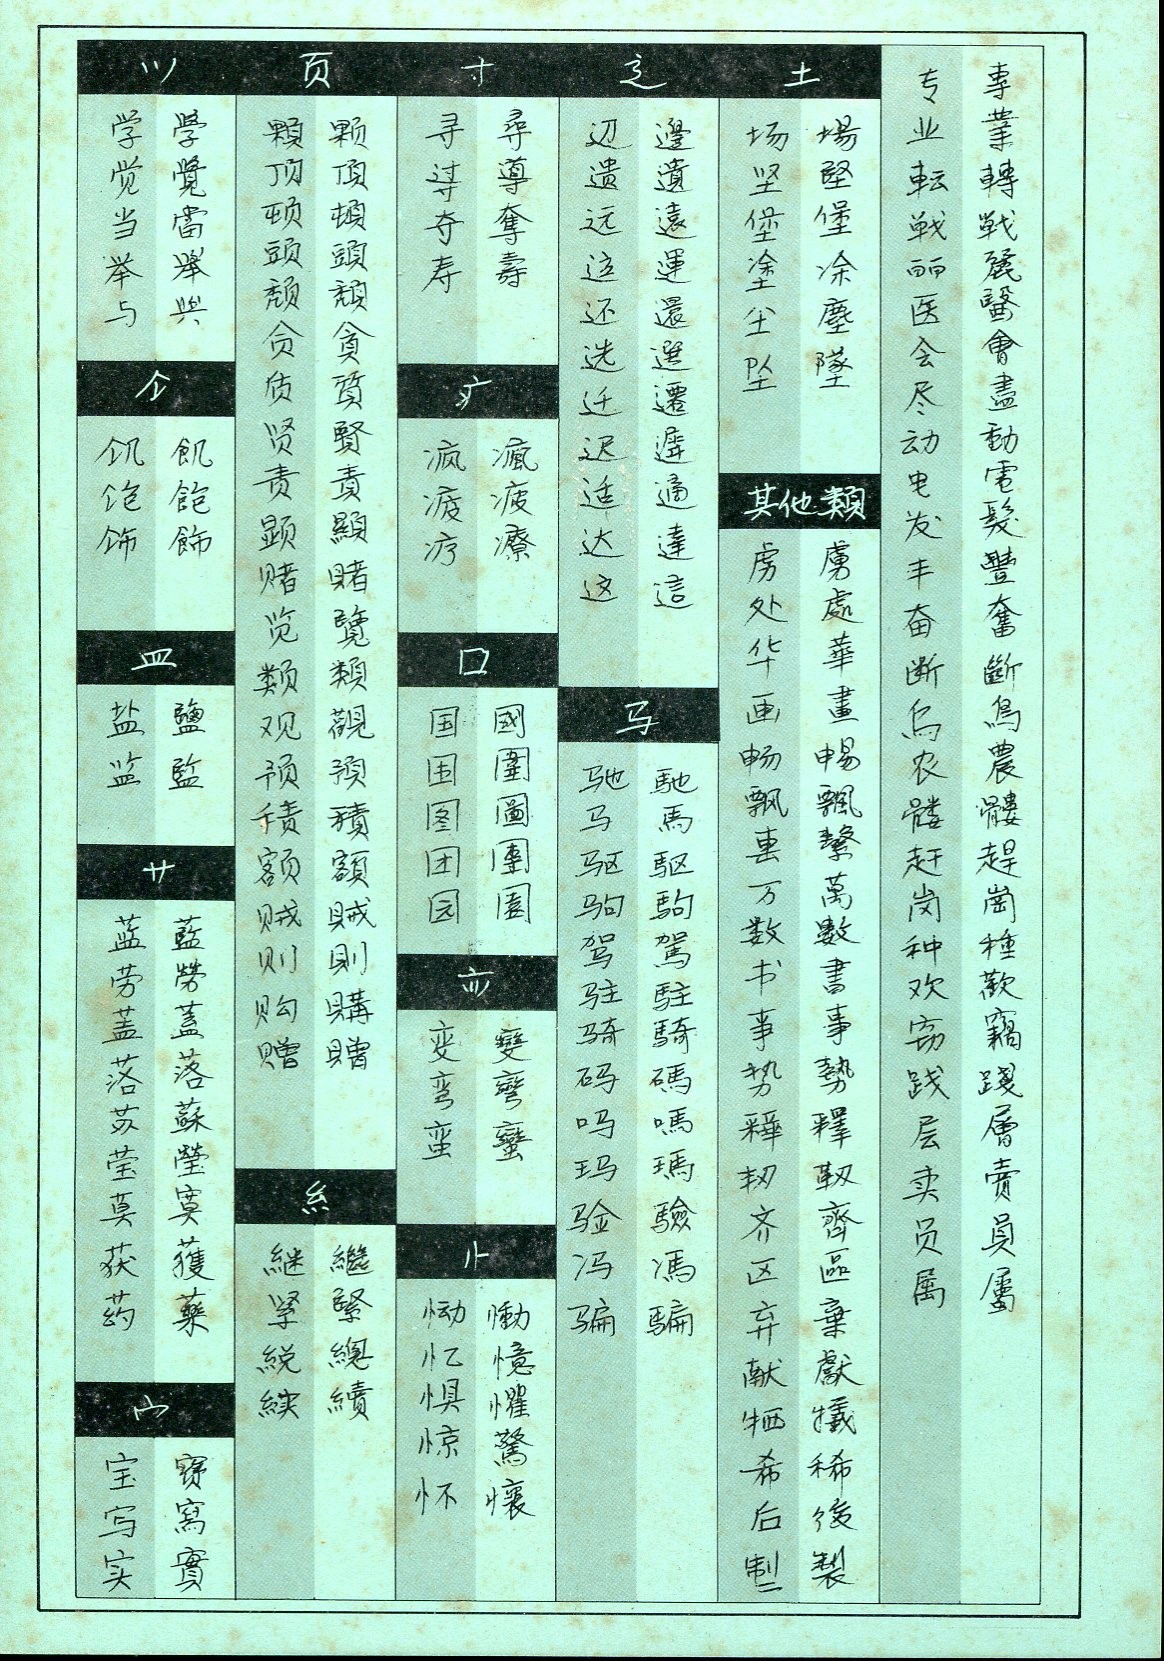 專業轉戰麗醫會盡動電髮豐奮斷鳥農髏趕崗種歡竊踐層賣員屬
专业転战丽医会尽动电发丰奋断鸟农髅赶岗种欢窃践层卖员属
土
場堅堡涂塵墜
场坚堡塗尘坠
其他類
虜處華畫暢飄繫萬數書事勢釋韌齊區棄獻犧稀後製
虏处华画畅飘万数书事势韧齐区弃献牺希后制
辶
邊遺遠運還選遷遲適達這
辺遗远运还选迁迟适达这
马
馳馬駆駒駕駐騎碼嗎瑪驗馮騙
驰马驱驹驾驻骑码吗玛验冯骗
寸
尋導奪壽
寻夺寿
疒
瘋疲療
疯疲疗
囗
國圍圖團園
国围图团园
亦
變彎蠻
变弯蛮
忄
慟憶懼驚懷
恸忆惧惊怀
页
颗頂頓頭頽貪質賢責顯賭覽類觀預積額賊則購贈
顆顶顿頭颓贪质贤责显赌览类观预积额贼则购赠
糹
繼緊總續
継紧続
𭕄
學覺當舉與
学觉当举与
饣
飢飽飾
饥饱饰
皿
鹽監
盐监
艹
藍勞蓋落蘇瑩寞獲藥
蓝劳盖落苏莹莫获药
宀
寶寫實
宝写实